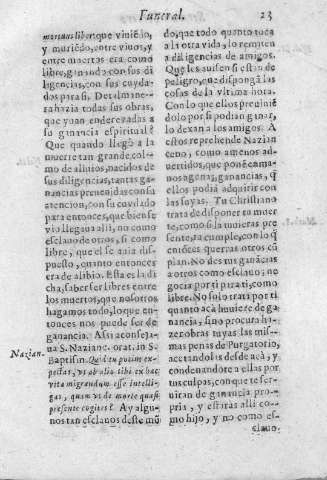 Funeral. 23
mortuos liber: que viniẽdo,
y muriẽdo, entre viuos, y
entre muertos era como
libre, ganando con sus di
ligencias, con sus cuyda-
dos para si. De tal mane-
ra hazia todas sus obras,
que yuan endereçadas a
su ganancia espiritual?
Que quando llegò a la
muerte tan grande, col-
mo de aliuios, nacidos de
sus diligencias, tantas ga-
nancias preuenidas con sa
atencion, con su cuydado
para entonces, que bien se
vio llegaua alli, no como
esclauo de otros, si como
libre, que el se auia dis-
puesto, quanto entonces
era de aliuio. Esta es la di
cha, saber ser libres entre
los muertos, que nosotros
hagamos todo, lo que en-
tonces nos puede ser de
ganancia. Assi aconseja-
ua S. Nazianc. orat. in S.
Nazian.
Baptism. Quid en putim ex-
pectas, vt ab alio tibi ex hac
vita migrandum esse intelli-
gas, quam vt de morte quasi
presente cogites? Ay algu-
nos tan esclauos deste mũ
do, que todo quanto toca
a la otra vida, lo remiten
a diligencias de amigos.
Que les auisen si estàn de
peligro, que dispongã las
cosas de la vltima hora.
Con lo que ellos preuiniẽ
dolo por si podian ganar,
lo dexan a los amigos. A
estos reprehende Nazian
ceno, como a menos ad-
uertidos, que ponẽ en ma
nos agenas, ganancias, q̃
ellos podiã adquirir con
las suyas. Tu Christiano
trata de disponer tu muer
te, como si la tuuieras pre
sente, tu cumple, con lo q̃
entonces querràs otros cũ
plan. No des tus ganãcias
a otros como esclauo; ne
gocia por ti para ti, como
libre. No solo trata por ti
quanto acà huuiere de ga
nancia, sino procura ha-
zer obras tuyas las mis-
mas penas de Purgatorio,
acetandolas desde acà, y
condenandore a ellas por
tus culpas, con que te ser-
uiran de ganancia pro-
pria, y estaràs alli co-
mo hijo, y no como es-
clauo.